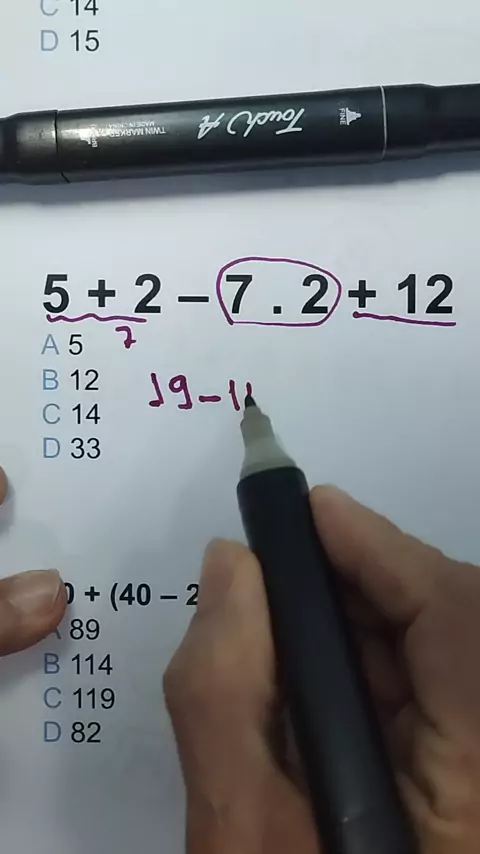 C 14
D 15
TWIN MARKER
MADE IN CHINA
Touch A
FINE
5 + 2 – 7 . 2 + 12
7
A 5
B 12
C 14
D 33
19 – 1
0 + (40 – 2
A 89
B 114
C 119
D 82